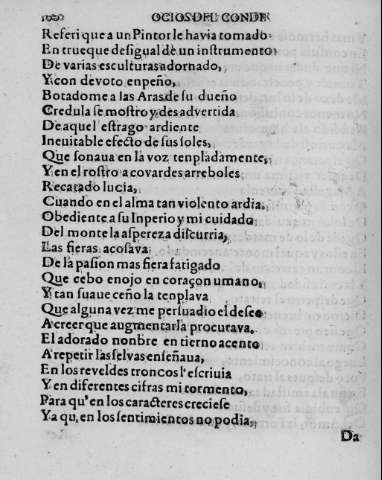 OCIOS DEL CONDE
Referi que a un Pintor le havia tomado
En trueque desigual de un instrumento
De varias esculturas adornado,
Y con devoto enpeño,
Botadome a las Aras de su dueño
Credula se mostro y desadvertida
De aquel estrago ardiente
Ineuitable efecto de sus soles,
Que sonaua en la voz tenpladamente,
Y en el rostro a covardes arreboles
Recatado lucia,
Cuando en el alma tan violento ardia.
Obediente a su Inperio y mi cuidado
Del monte la aspereza discurria,
Las fieras acosava
De la pasion mas fiera fatigado
Que cebo enojo en coraçon umano,
Y tan suaue ceño la tenplava
Que alguna vez me persuadio el deseo
A creer que augmentarla procurava.
El adorado nonbre en tierno acento
A repetir las selvas enseñaua,
En los reveldes troncos l'escriuia
Y en diferentes cifras mi tormento,
Para qu'en los caracteres creciese
Ya qu, en los sentimientos no podia,
Da